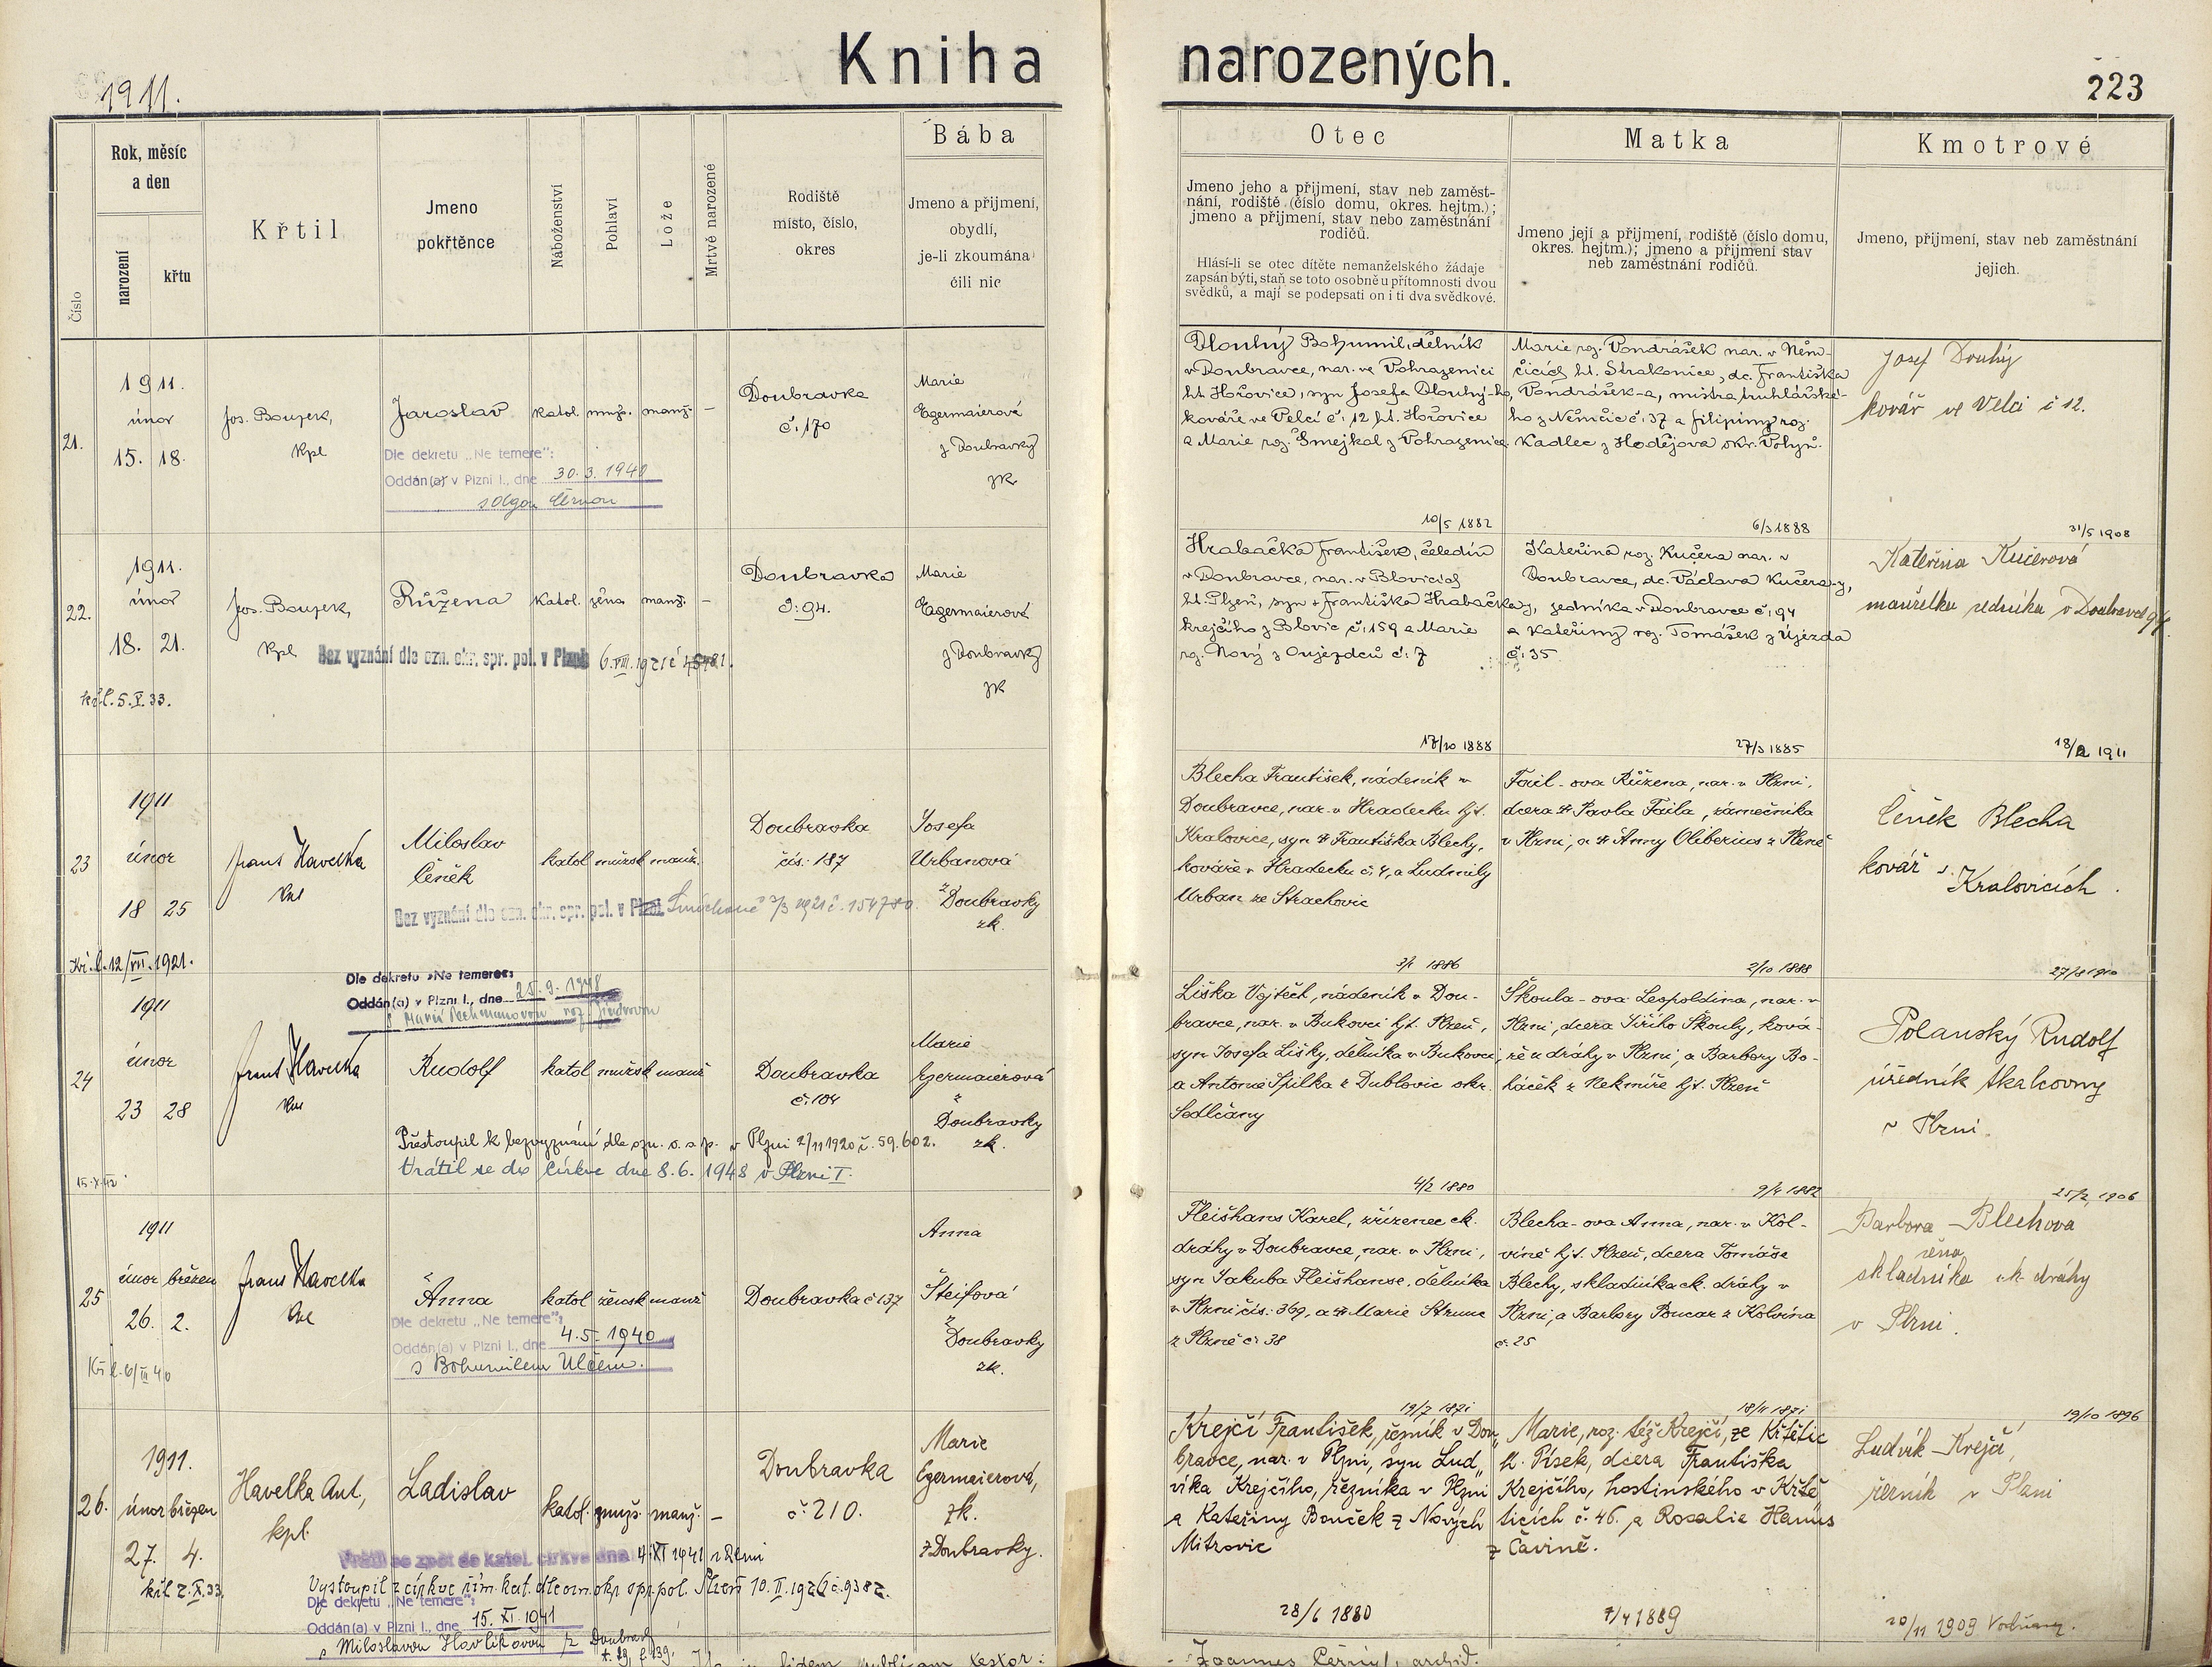 Kniha narozených.
1911.
223
Číslo
Rok, měsíc
a den
narození
křtu
Křtil
Jmeno
pokřtěnce
Náboženství
Pohlaví
Lože
Mrtvě narozené
Rodiště
místo, číslo,
okres
Bába
Jmeno a přijmení,
obydlí,
je-li zkoumána
čili nic
Otec
Jmeno jeho a přijmení, stav neb zaměst-
nání, rodiště (číslo domu, okres. hejtm.);
jmeno a přijmení, stav nebo zaměstnání
rodičů.
Hlásí-li se otec dítěte nemanželského žádaje
zapsán býti, staň se toto osobně u přítomnosti dvou
svědků, a mají se podepsati on i ti dva svědkové.
Matka
Jmeno její a přijmení, rodiště (číslo domu,
okres. hejtm.); jmeno a přijmení stav
neb zaměstnání rodičů.
Kmotrové
Jmeno, přijmení, stav neb zaměstnání
jejich.
21.
1911.
únor
15. 18.
Jos. Boujek,
kpl
Jaroslav
katol. muž. manž. –
Doubravka
č: 170
Marie
Egermaierová
z Doubravky
zk
Dle dekretu „Ne temere":
Oddán(a) v Plzni I., dne 30.3.1940
s Olgou Černou
Dlouhý Bohumil, dělník
v Doubravce, nar. ve Pohrazenici
ht. Hořovice, syn Josefa Dlouhý-ho,
kováře ve Velcí č: 12 ht. Hořovice
a Marie roz. Smejkal z Pohrazenice
10/5 1882
Marie roz. Vondrášek nar. v Něm-
čicích ht. Strakonice, dc. Františka
Vondrášek-a, mistra truhlářské-
ho z Němčic č: 37 a Filipiny roz.
Kadlec z Hodějova okr. Volyň.
6/3 1888
Josef Douhý
kovář ve Velci č 12.
31/5 1908
22.
1911.
únor
18. 21.
křl. 5.X.33.
Jos. Boujek,
kpl
Růžena
katol. žena manž. –
Doubravka
č: 94.
Marie
Egermaierová
z Doubravky
zk
Bez vyznání dle ozn. okr. spr. pol. v Plzni 6.VIII.1921 č
Hrabačka František, čeledín
v Doubravce, nar. v Blovicích
ht. Plzeň, syn + Františka Hrabačka,
krejčího z Blovic č: 159 a Marie
roz. Nový z Oujezdců č: 7
17/10 1888
Kateřina roz. Kučera nar. v
Doubravce, dc. Václava Kučera-y,
sedníka v Doubravce č: 94
a Kateřiny roz. Tomášek z Újezda
č: 35
27/3 1885
Kateřina Kučerová
manželka sedníka v Doubravce 94.
18/2 1911
23
1911
únor
18 25
Kř.l. 12/VII.1921.
Frant Havelka
Miloslav
Čeněk
katol mužsk manž.
Doubravka
čís: 187
Josefa
Urbanová
z Doubravky
zk.
Bez vyznání dle ozn. okr. spr. pol. v Plzni
Blecha František, nádeník v
Doubravce, nar. v Hradecku hjt.
Kralovice, syn + Františka Blechy,
kováře v Hradecku č: 4, a Ludmily
Urban ze Strachovic
3/1 1886
Fail-ova Růžena, nar. v Plzni,
dcera + Pavla Faila, zámečníka
v Plzni, a + Anny Oliberius z Plzně
2/10 1888
Čeněk Blecha
kovář v
Kralovicích.
27/8 1910
24
1911
únor
23 28
Frant Havelka
Dle dekretu »Ne temere«:
Oddán(a) v Plzni I., dne 25.9.1948
Rudolf
katol mužsk manž
Doubravka
č: 104
Marie
Egermaierová
z
Doubravky
zk.
Přestoupil k bezvyznání dle ozn. o. s. p. v Plzni 2/11 1920 č. 59.602.
Vrátil se do církve dne 8.6.1948 v Plzni I.
Liška Vojtěch, nádeník v Dou-
bravce, nar. v Bukovci hjt. Plzeň,
syn Josefa Lišky, dělníka v Bukovci,
a Antonie Spilka z Dublovic okr.
Sedlčany
4/2 1880
Škoula-ova Leopoldina, nar. v
Plzni, dcera Jiřího Škouly, ková-
ře u dráhy v Plzni, a Barbory Bo-
háček z Nekmíře hjt. Plzeň
9/4 1882
Polanský Rudolf
úředník tkalcovny
v Plzni.
25/2 1906
25
1911
únor březen
26. 2.
Kř.l. 6/III 40
Frant Havelka
Anna
katol žensk manž
Doubravka č 137
Anna
Šteifová
z
Doubravky
zk.
Dle dekretu „Ne temere":
Oddán(a) v Plzni I., dne 4.5.1940
s Bohumilem Ulčem.
Fleišhans Karel, zřízenec ck.
dráhy v Doubravce, nar. v Plzni,
syn Jakuba Fleišhanse, dělníka
v Plzni čís: 369, a + Marie Strunc
z Plzně č: 38
19/7 1871
Blecha-ova Anna, nar. v Kol-
víně hjt. Plzeň, dcera Tomáše
Blechy, skladníka ck. dráhy v
Plzni, a Barbory Poncar z Kolvína
č: 25
18/11 1871
Barbora Blechova
žena
skladníka ck dráhy
v Plzni.
19/10 1896
26.
1911.
únor březen
27. 4.
křl 2.X.33.
Havelka Ant,
kpl.
Ladislav
katol. muž. manž. –
Doubravka
č: 210.
Marie
Egermaierová,
zk.
z Doubravky.
Vrátil se zpět do katol. církve dne 4.XI 1941 v Plzni
Vystoupil z církve řím. kat. dle ozn. okr. spr. pol. Plzeň 10.II.1926 č. 9382.
Dle dekretu „Ne temere":
Oddán(a) v Plzni I., dne 15.XI.1941
s Miloslavou Havlíkovou z Doubravky
Krejčí František, řezník v Dou„
bravce, nar. v Plzni, syn Lud„
víka Krejčího, řezníka v Plzni
a Kateřiny Bouček z Nových
Mitrovic
28/6 1880
Marie, roz. též Krejčí, ze Křtětic
h. Písek, dcera Františka
Krejčího, hostinského v Křtě„
ticích č: 46. a Rosalie Hanus
z Čavině.
7/4 1889
Ludvík Krejčí,
řezník v Plzni
20/11 1909 Vodňany.
Joannes Černý, archid.